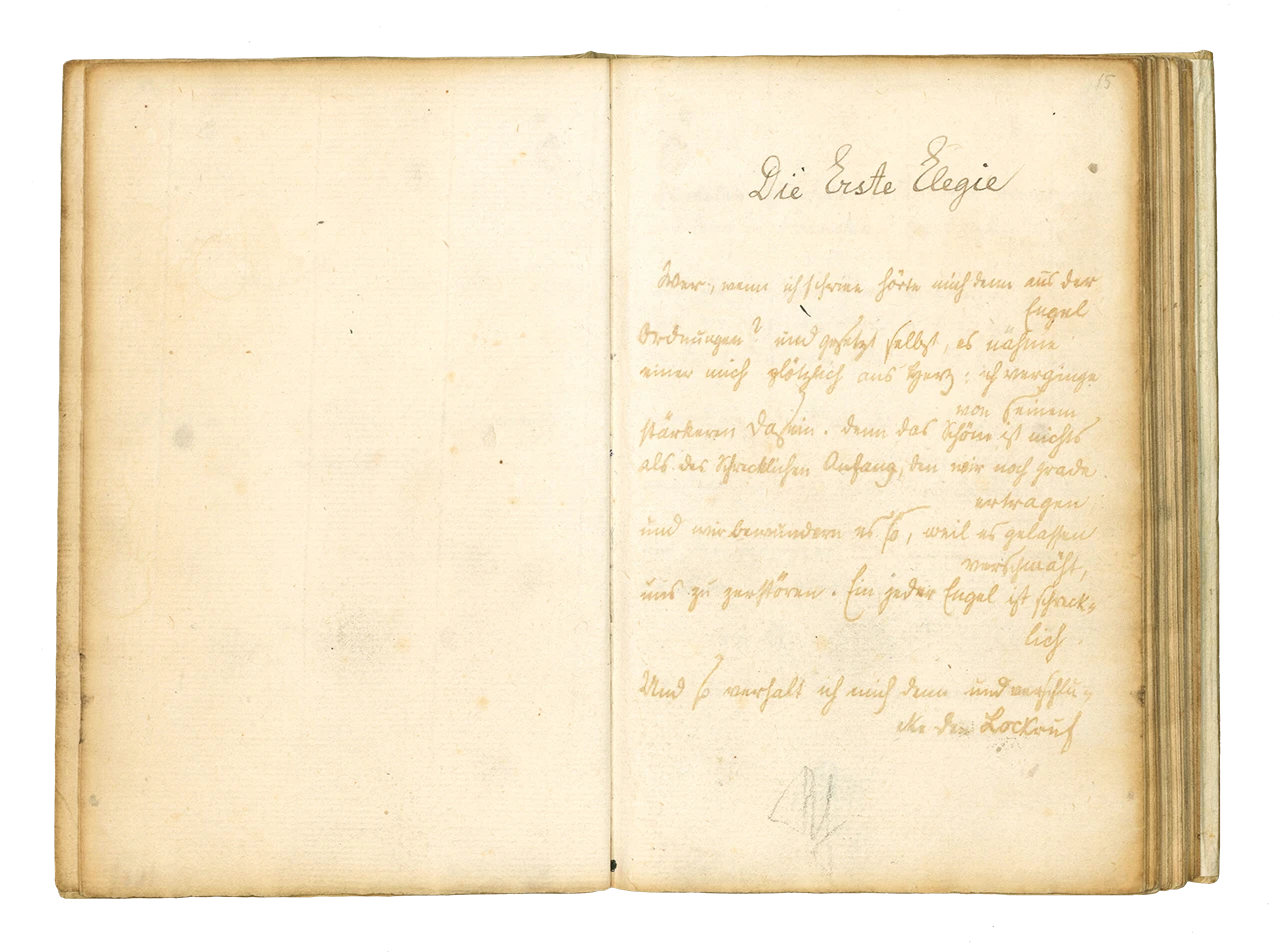 15
Die Erste Elegie
Wer, wenn ich schriee hörte mich denn aus der
Engel
Ordnungen? und gesetzt selbst, es nähme
einer mich plötzlich ans Herz: ich verginge
von seinem
stärkeren Dasein. denn das Schöne ist nichts
als des Schrecklichen Anfang, den wir noch grade
ertragen
und wir bewundern es so, weil es gelassen
verschmäht,
uns zu zerstören. Ein jeder Engel ist schreck=
lich
Und so verhalt ich mich denn und verschlu=
cke den Lockruf